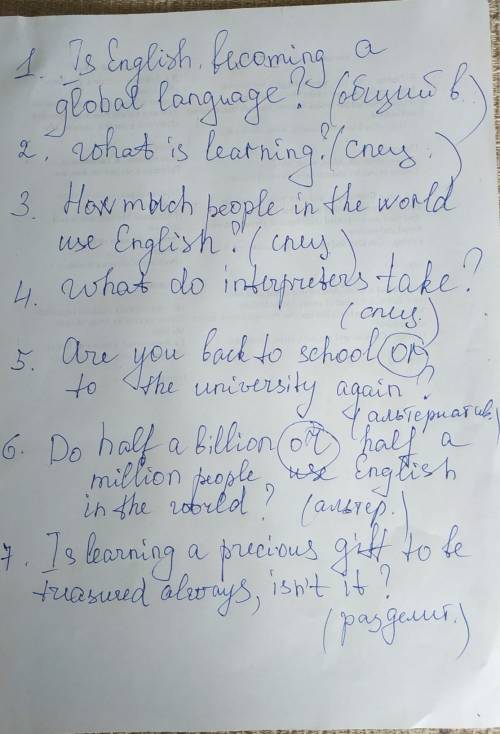 1. Is English becoming a
global language? (общий в.)
2. What is learning? (спец.)
3. How much people in the world
use English? (спец)
4. What do interpreters take?
(спец.)
5. Are you back to school or
to the university again?
(альтернатив.)
6. Do half a billion or half a
million people use English
in the world? (альтер.)
7. Is learning a precious gift to be
treasured always, isn't it?
(разделит.)